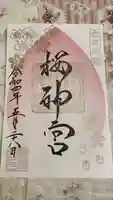 桜神宮
令和四年五月二八日